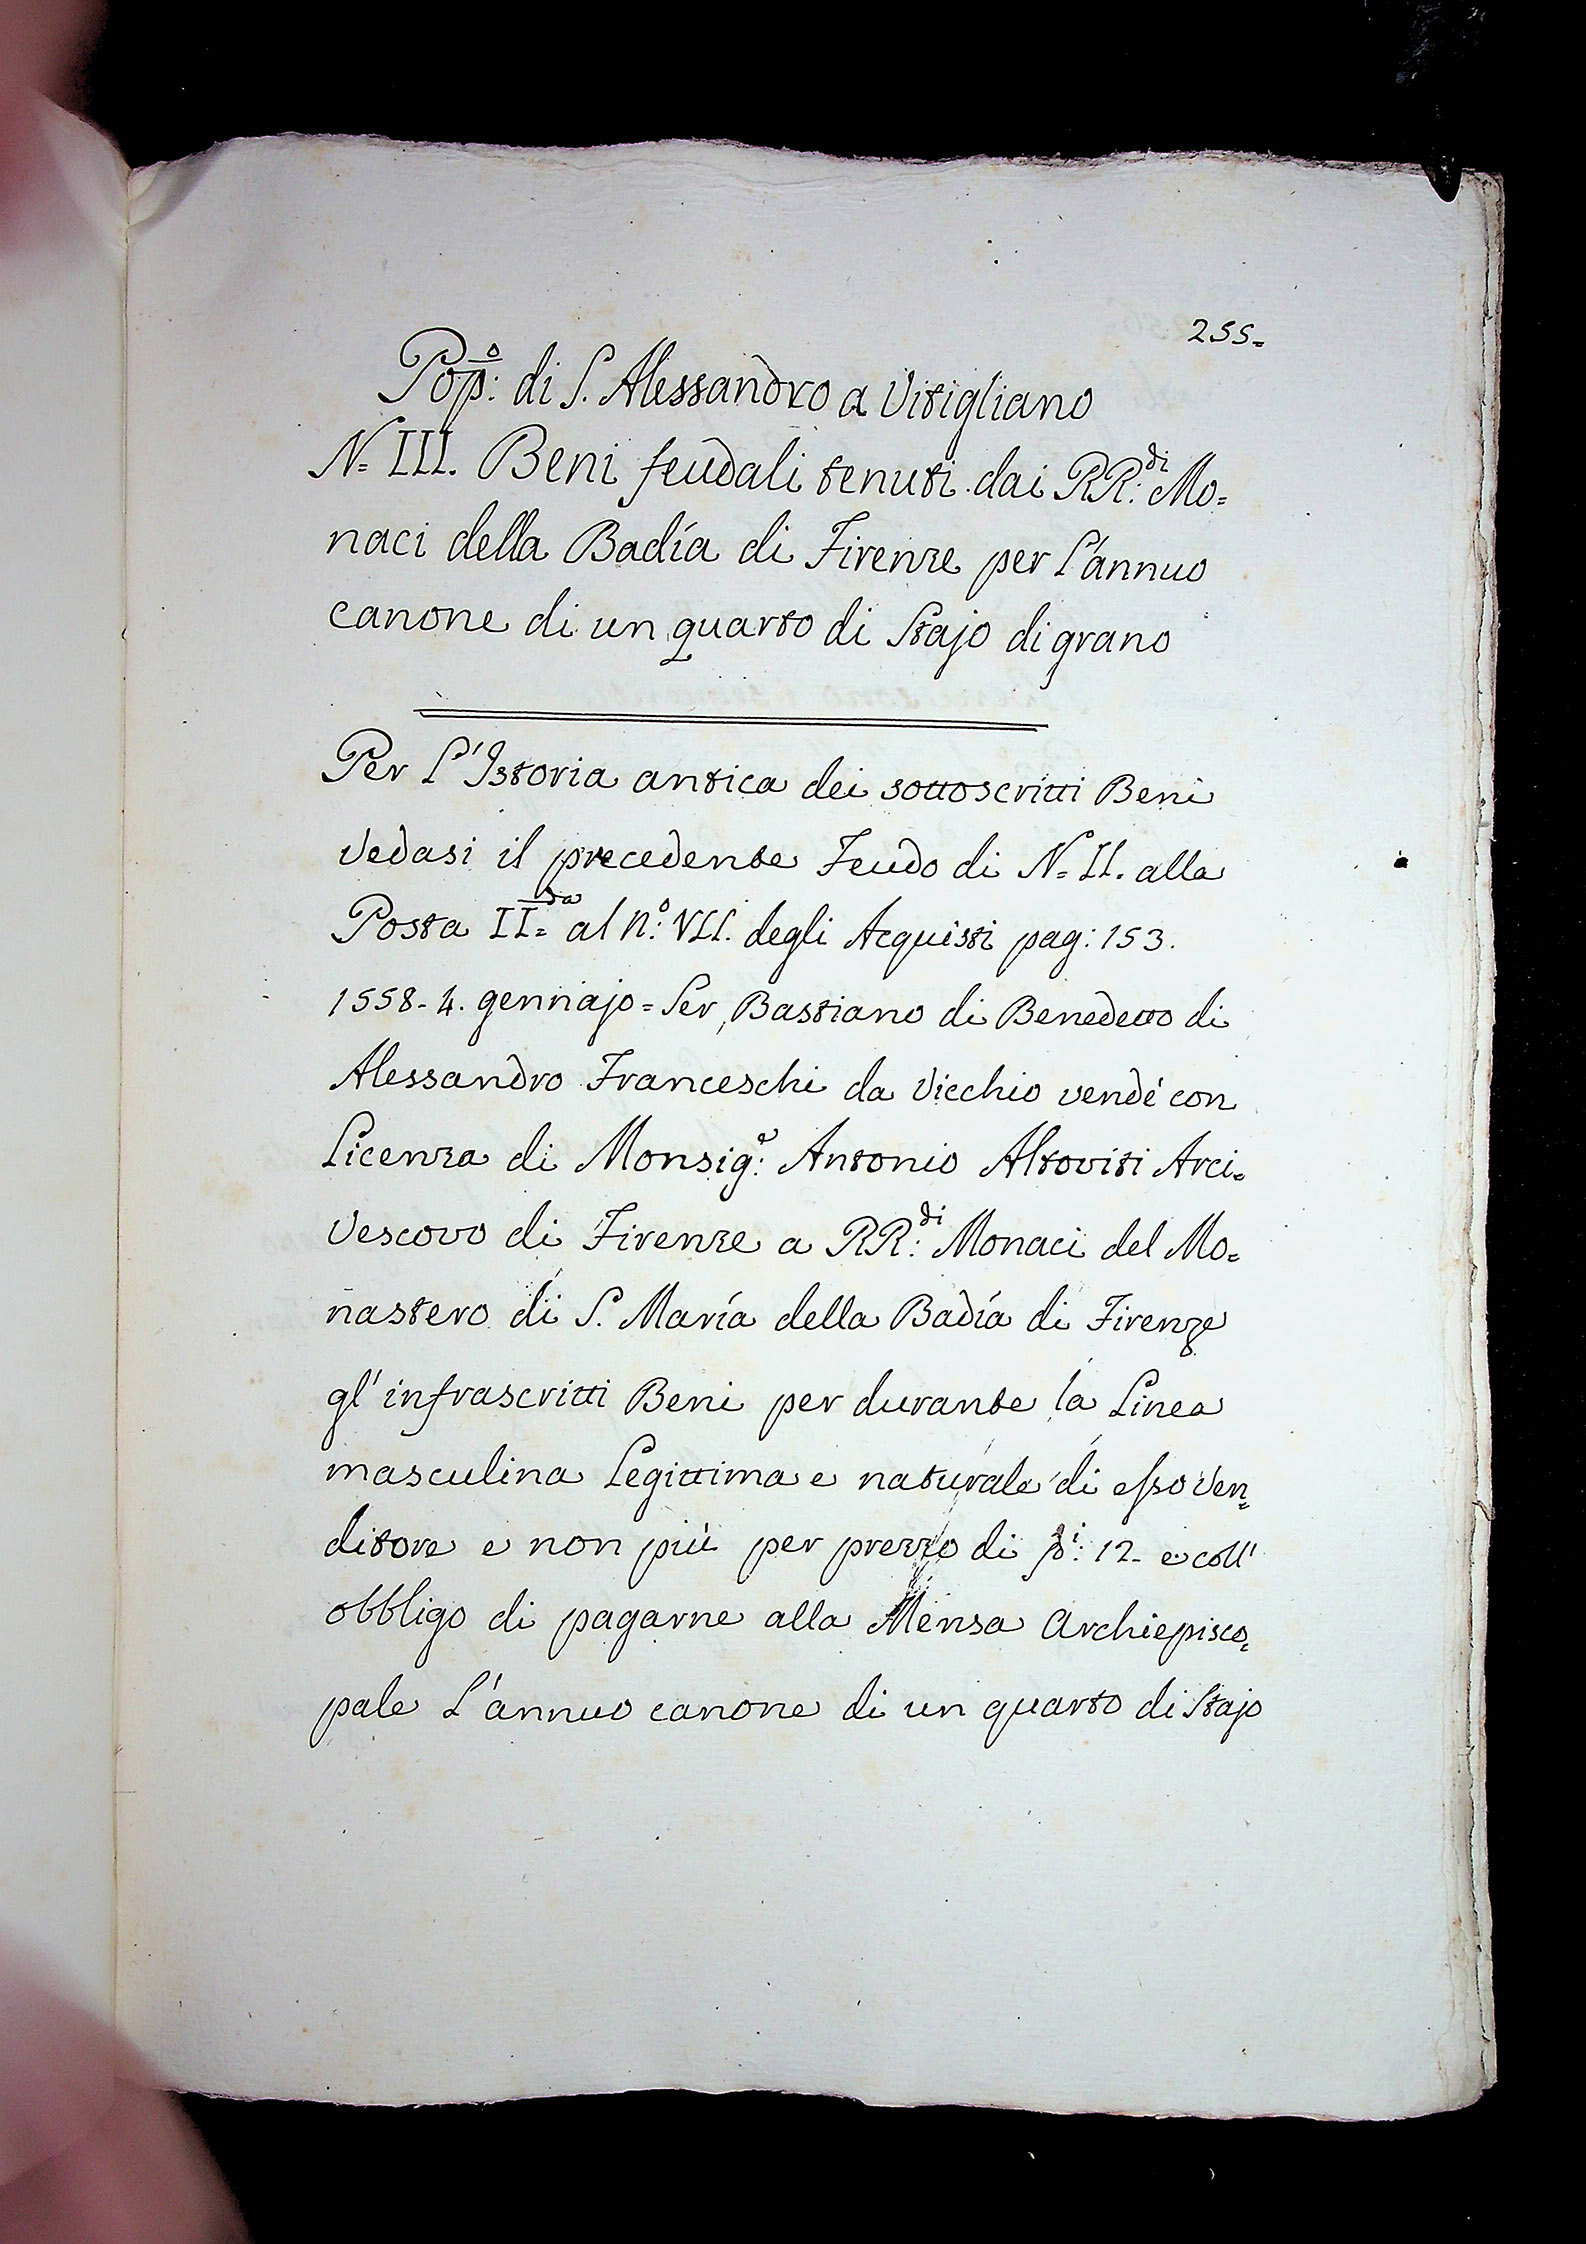 255=
Pop:º di S. Alessandro a Vitigliano
N= III. Beni feudali tenuti dai RR:di Mo=
naci della Badía di Firenze per l'annuo
canone di un quarto di Stajo di grano
Per l'Istoria antica dei sottoscritti Beni
vedasi il precedente Feudo di N= II. alla
Posta II=da al N:º VII. degli Acquisti pag: 153.
1558- 4. gennajo= Ser Bastiano di Benedetto di
Alessandro Franceschi da Vicchio vendé con
Licenza di Monsig:e Antonio Altoviti Arci=
Vescovo di Firenze a RR:di Monaci del Mo=
nastero di S. María della Badía di Firenze
gl'infrascritti Beni per durante la Linea
masculina Legittima e naturale di esso Ven=
ditore e non più per prezzo di 12- e coll'
obbligo di pagarne alla Mensa Archiepisco=
pale L'annuo canone di un quarto di Stajo